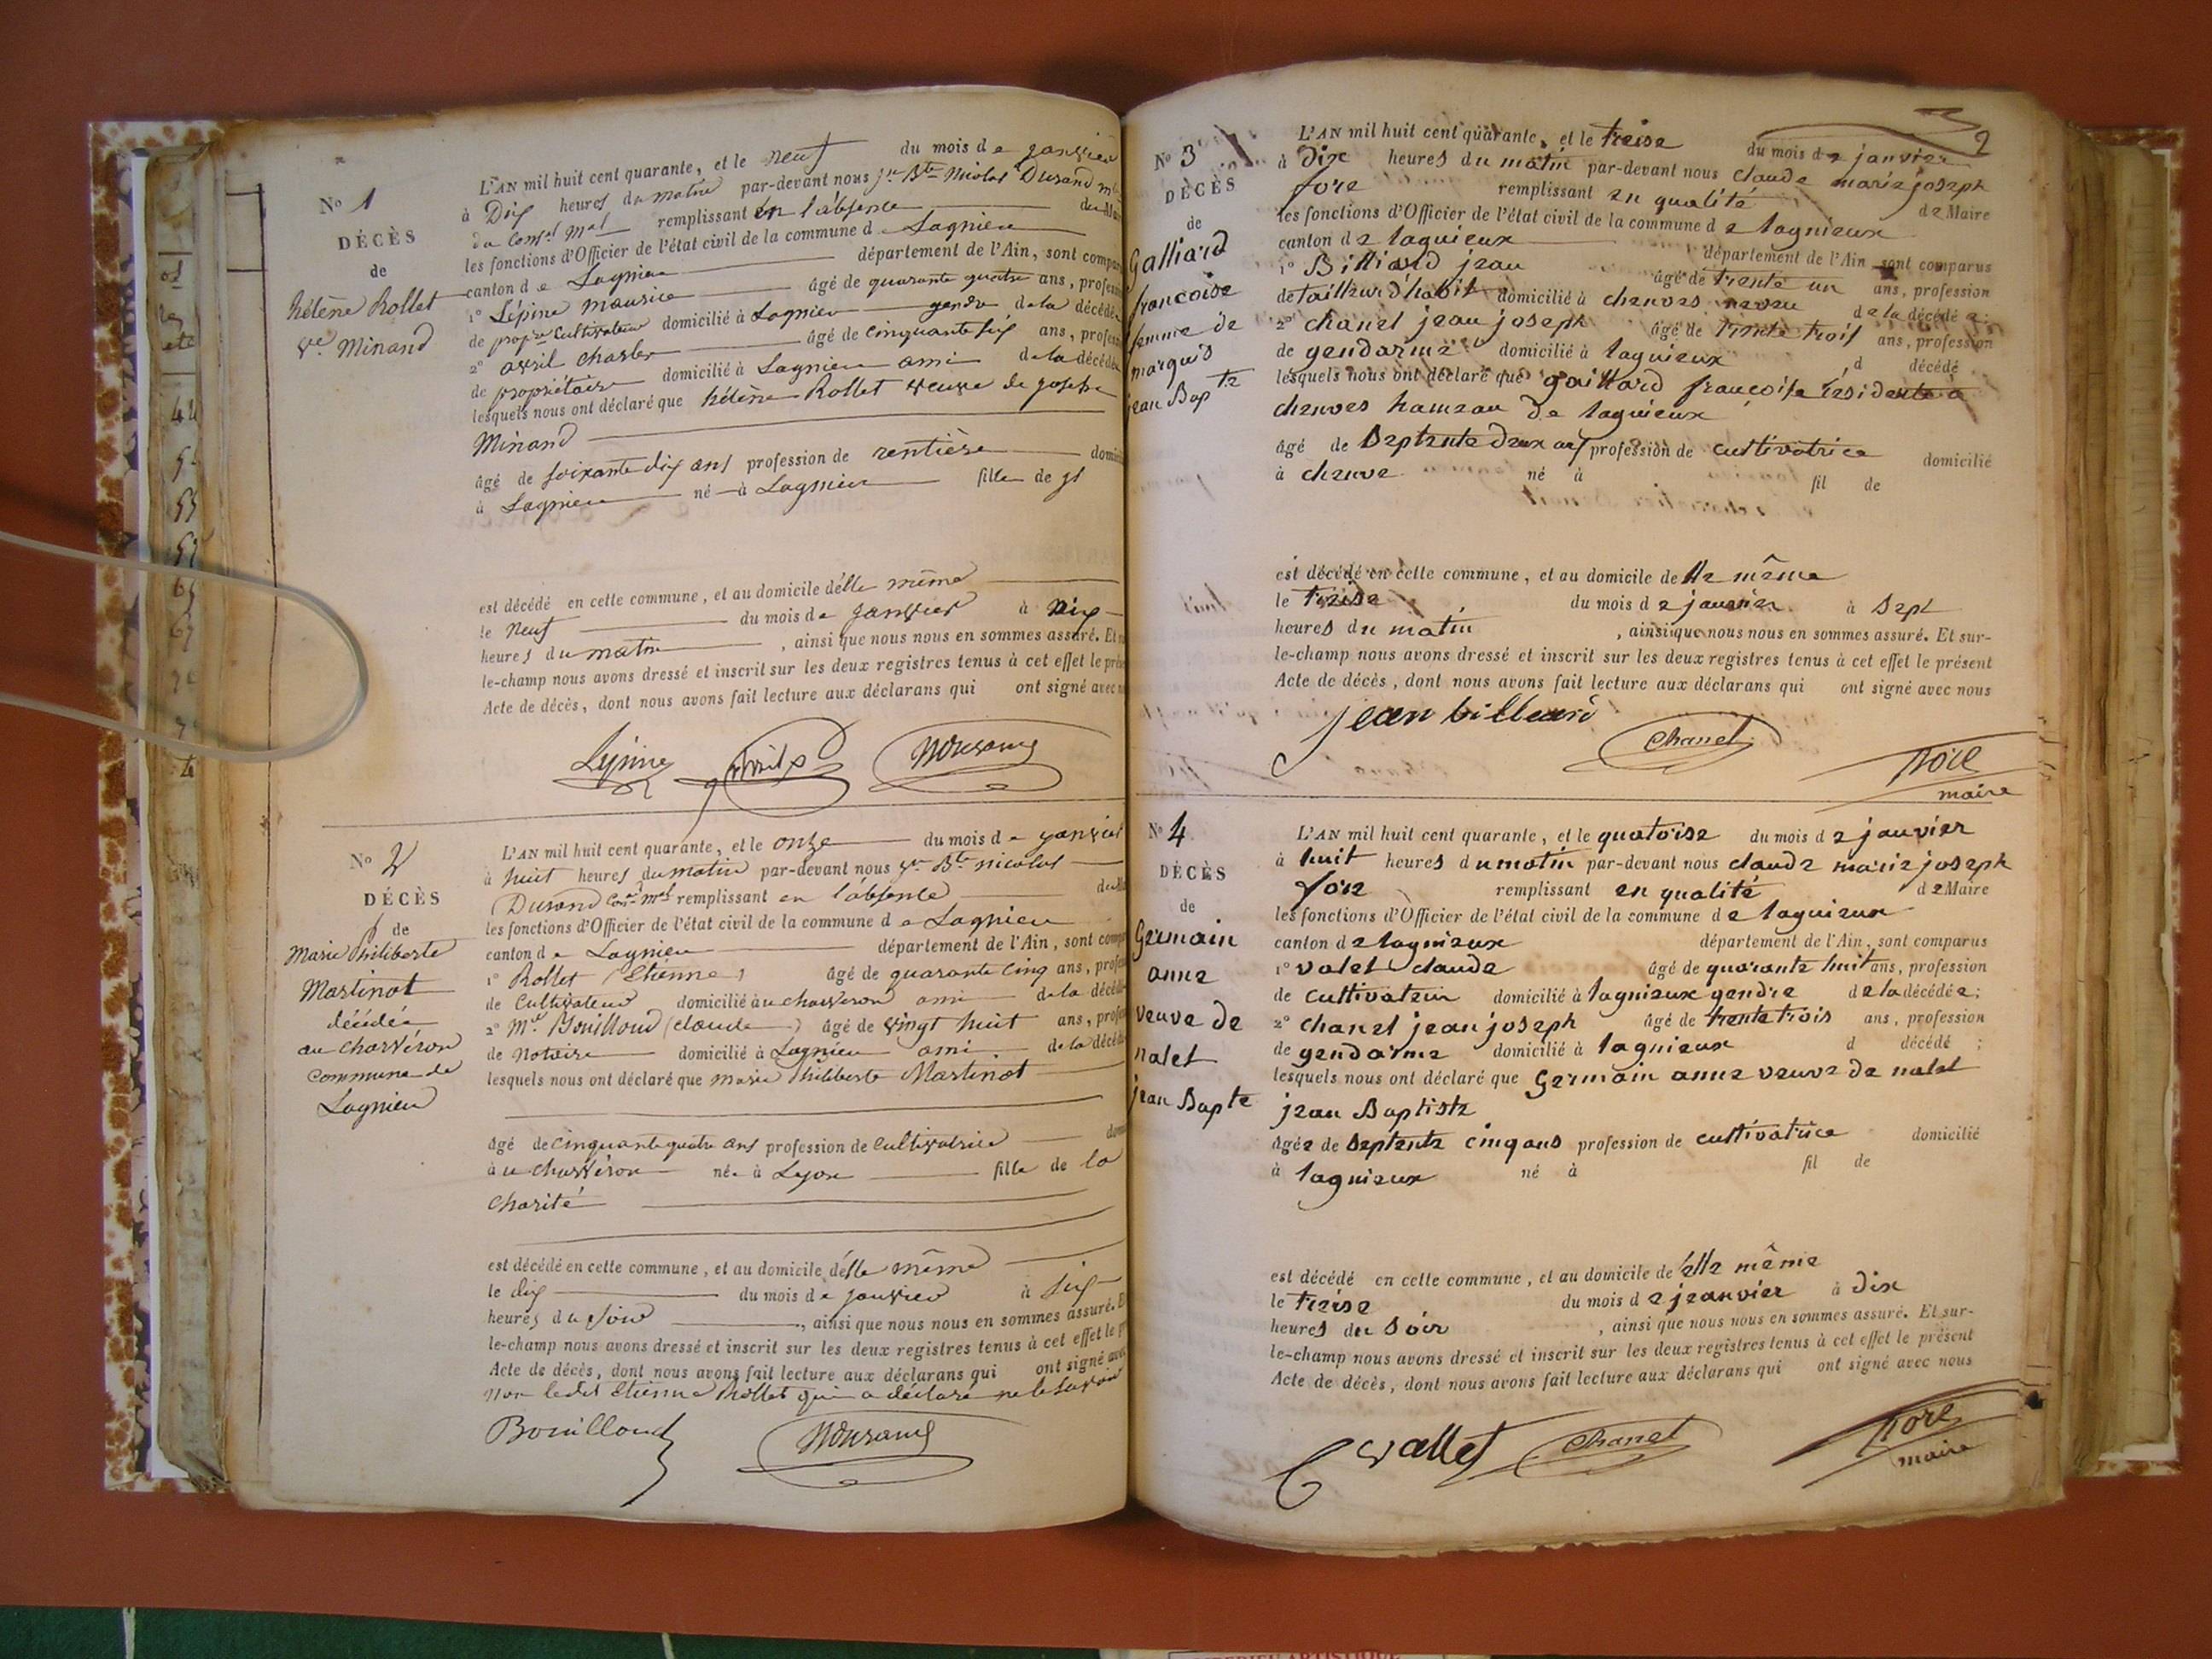 N° 1
DÉCÈS
de
hélène Rollet
ve Minand
L'AN mil huit cent quarante, et le neuf du mois de janvier
à Dix heures du matin par-devant nous jn Bte Nicolas Durand
du Consel Mal remplissant en l'absence du
les fonctions d'Officier de l'état civil de la commune de Lagnieu
canton de Lagnieu département de l'Ain, sont
1° Lépine Maurice âgé de quarante quatre ans,
de propre Cultivateur domicilié à Lagnieu gendre de la
2° avril charles âgé de cinquante six ans,
de propriétaire domicilié à Lagnieu ami de la
lesquels nous ont déclaré que hélène Rollet veuve de joseph
Minand
âgé de soixante dix ans profession de rentière
à Lagnieu né à Lagnieu fille de
est décédé en cette commune, et au domicile d'elle même
le neuf du mois de janvier à Dix
heures du matin, ainsi que nous nous en sommes assuré. Et
le-champ nous avons dressé et inscrit sur les deux registres tenus à cet effet le
Acte de décès, dont nous avons fait lecture aux déclarans qui ont signé avec
Lépine
N Durand
N° 2
DÉCÈS
de
Marie Philiberte
Martinot
décédée
au charvéron
Commune de
Lagnieu
L'AN mil huit cent quarante, et le onze du mois de janvier
à huit heures du matin par-devant nous jn Bte nicolas
Durand Conr mal remplissant en l'absence du
les fonctions d'Officier de l'état civil de la commune de Lagnieu
canton de Lagnieu département de l'Ain, sont
1° Rollet (Etienne) âgé de quarante cinq ans,
de Cultivateur domicilié au charveron ami de la
2° Me Bouilloud (claude) âgé de vingt huit ans,
de notaire domicilié à Lagnieu ami de la
lesquels nous ont déclaré que marie Philiberte Martinot
âgé de cinquante quatre ans profession de Cultivatrice
à u charvéron née à Lyon fille de la
charité
est décédé en cette commune, et au domicile d'elle même
le dix du mois de janvier à six
heures du soir, ainsi que nous nous en sommes assuré.
le-champ nous avons dressé et inscrit sur les deux registres tenus à cet effet le
Acte de décès, dont nous avons fait lecture aux déclarans qui ont signé
non ledit Etienne Rollet qui a déclaré ne le savoir
Bouilloud
N Durand
2
N° 3
DÉCÈS
de
Galliard
francoise
femme de
marquis
jean Bapte
L'AN mil huit cent quarante, et le treise du mois de janvier
à dix heures du matin par-devant nous claude marie joseph
fore remplissant en qualité de Maire
les fonctions d'Officier de l'état civil de la commune de lagnieux
canton de lagnieux département de l'Ain, sont comparus
1° Billiard jean âgé de trente un ans, profession
de tailleur d'habit domicilié à chenves neveu de la décédée;
2° chanel jean joseph âgé de trente trois ans, profession
de gendarme domicilié à lagnieux d décédé
lesquels nous ont déclaré que gaillard françoise résidente à
chenves hameau de lagnieux
âgé de septente deux ans profession de cultivatrice domicilié
à chenve né à fil de
est décédé en cette commune, et au domicile de elle même
le treise du mois de janvier à sept
heures du matin, ainsi que nous nous en sommes assuré. Et sur-
le-champ nous avons dressé et inscrit sur les deux registres tenus à cet effet le présent
Acte de décès, dont nous avons fait lecture aux déclarans qui ont signé avec nous
jean billiard
Chanel
fore
maire
N° 4
DÉCÈS
de
Germain
anne
veuve de
nalet
jean Bapte
L'AN mil huit cent quarante, et le quatorse du mois de janvier
à huit heures du matin par-devant nous claude marie joseph
fore remplissant en qualité de Maire
les fonctions d'Officier de l'état civil de la commune de lagnieux
canton de lagnieux département de l'Ain, sont comparus
1° valet claude âgé de quarante huit ans, profession
de cultivateur domicilié à lagnieux gendre de la décédée;
2° chanel jean joseph âgé de trente trois ans, profession
de gendarme domicilié à lagnieux d décédé;
lesquels nous ont déclaré que Germain anne veuve de nalet
jean Baptiste
âgée de septente cinq ans profession de cultivatrice domicilié
à lagnieux né à fil de
est décédé en cette commune, et au domicile de elle même
le treise du mois de jeanvier à dix
heures du soir, ainsi que nous nous en sommes assuré. Et sur-
le-champ nous avons dressé et inscrit sur les deux registres tenus à cet effet le présent
Acte de décès, dont nous avons fait lecture aux déclarans qui ont signé avec nous
C vallet
Chanel
fore
maire